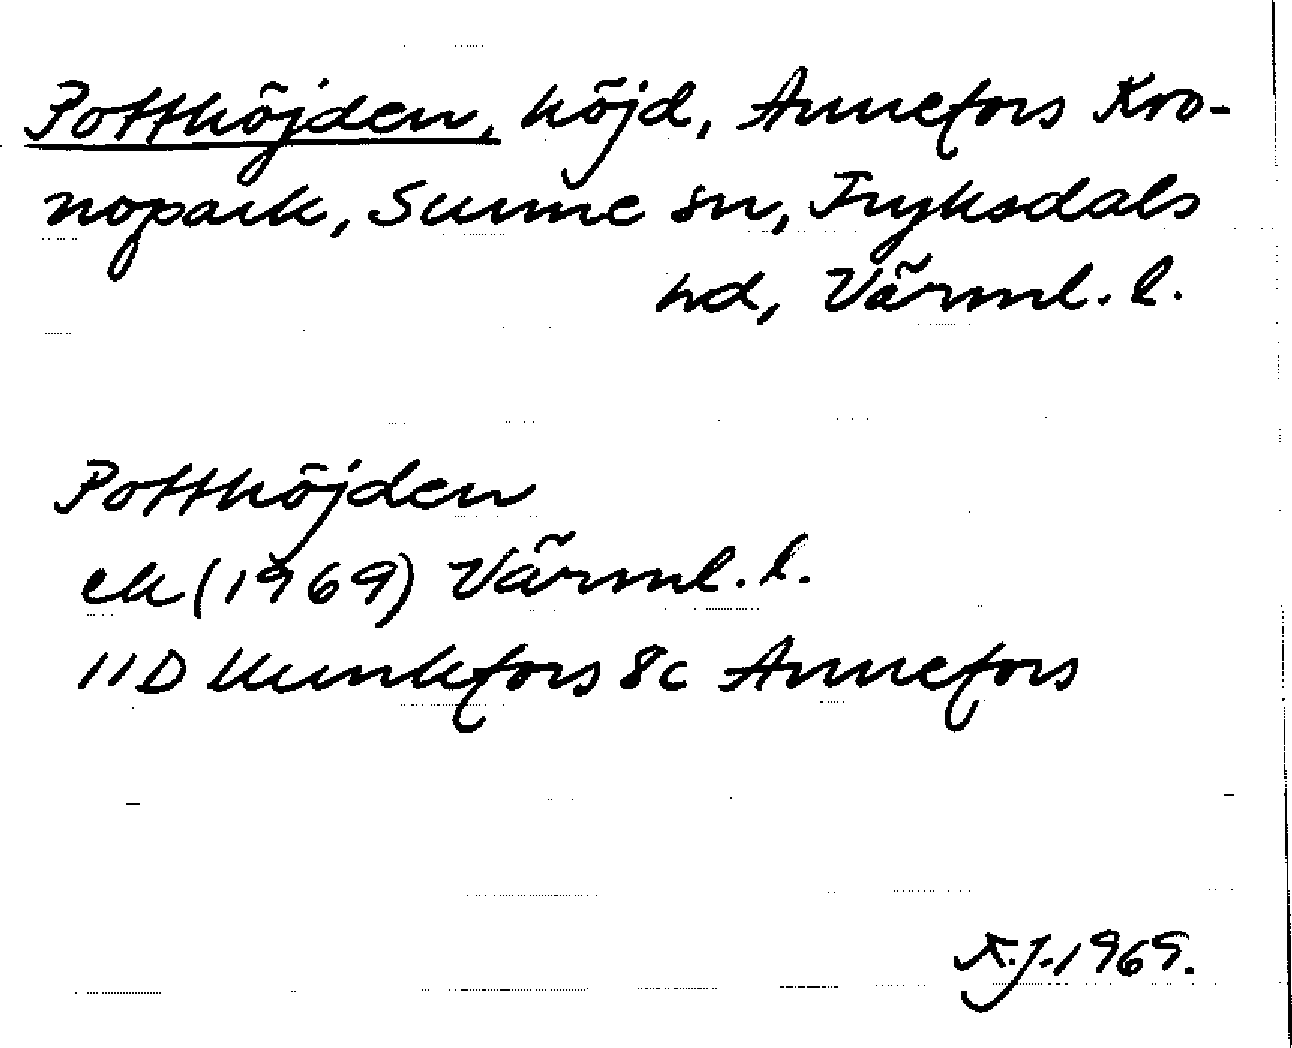 Potthöjden, höjd, Annefors Kro-
nopark, Sunne sn, Fryksdals
hd, Värml. l.
Potthöjden
ek (1969) Värml. l.
11D Munkfors 8c Annefors
K.J. 1969.